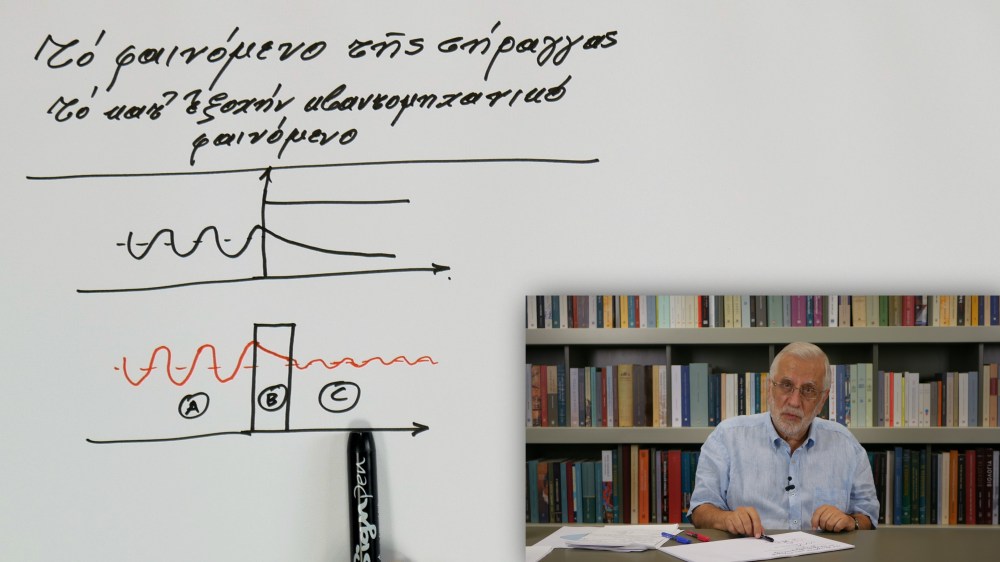 Τό φαινόμενο τῆς σήραγγας
Τό κατ' ἐξοχήν κβαντομηχανικό
φαινόμενο
A
B
C